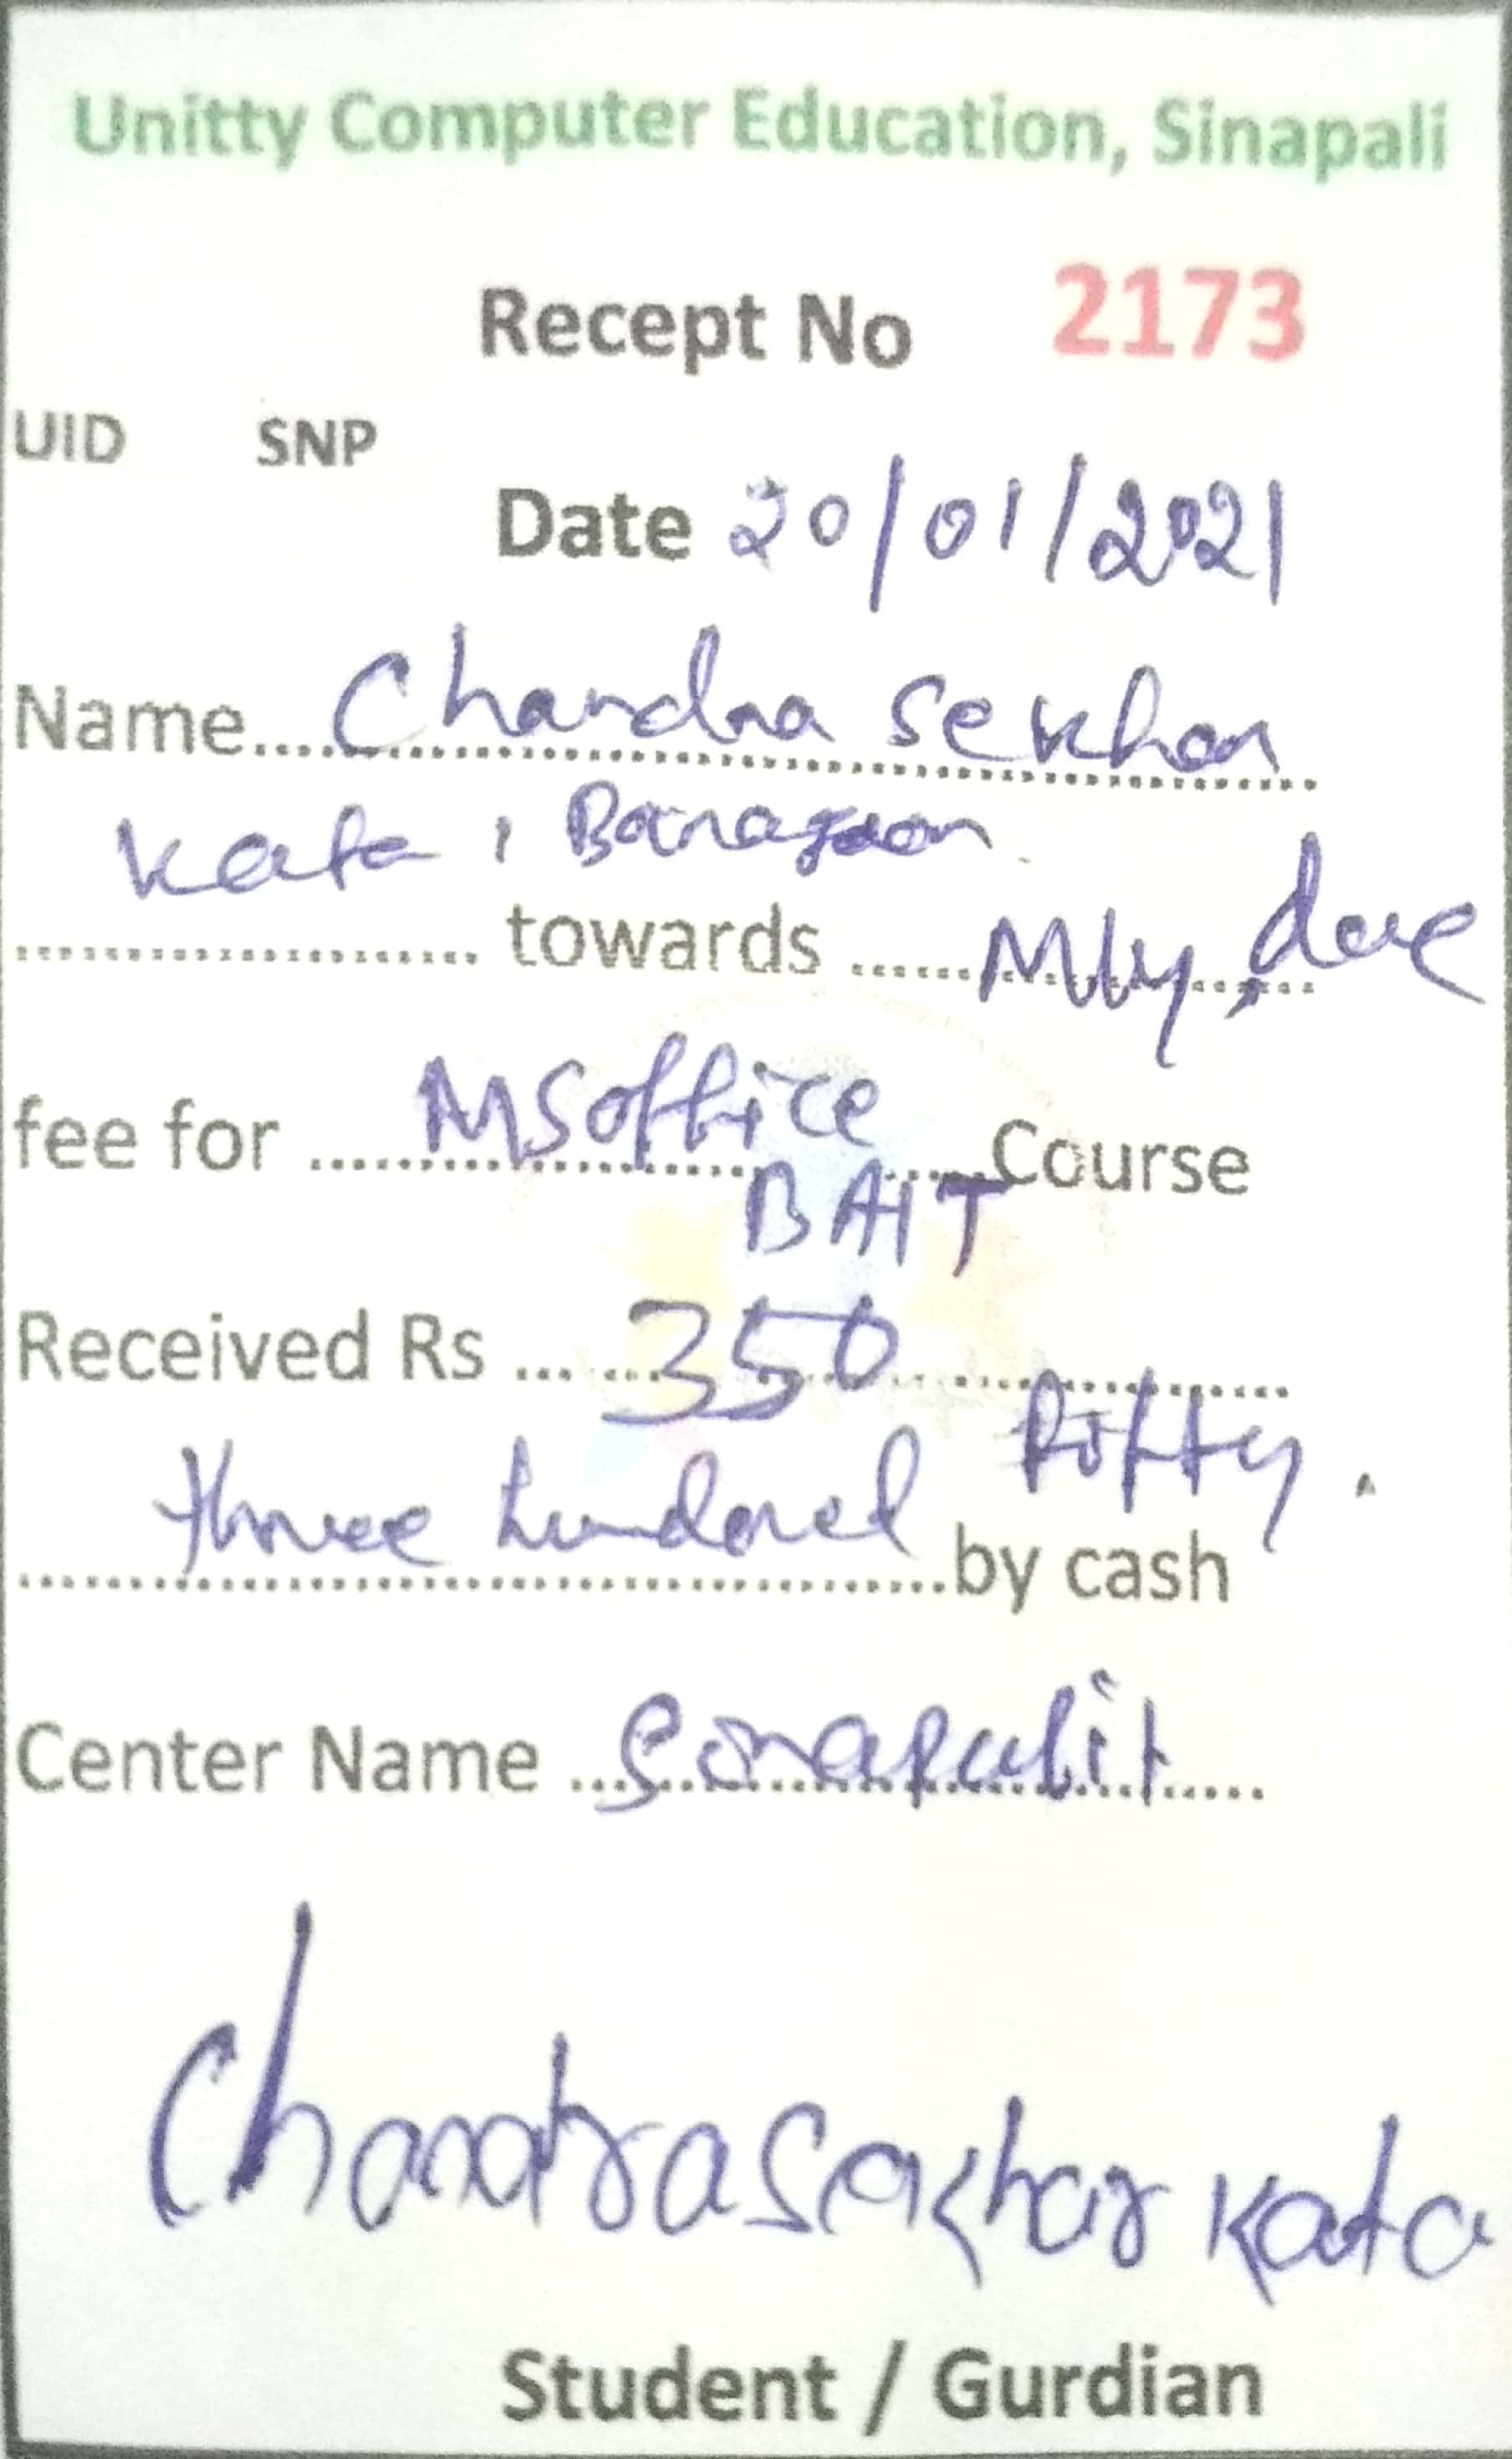 Unitty Computer Education, Sinapali
Recept No 2173
UID SNP
Date 20/01/2021
Name Chandra Sekhar
Kata, Banagaon
towards Mly, due
fee for MS office Course
BAIT
Received Rs 350
three hundred fifty.
by cash
Center Name
Chandra Sekhar Kata
Student / Gurdian